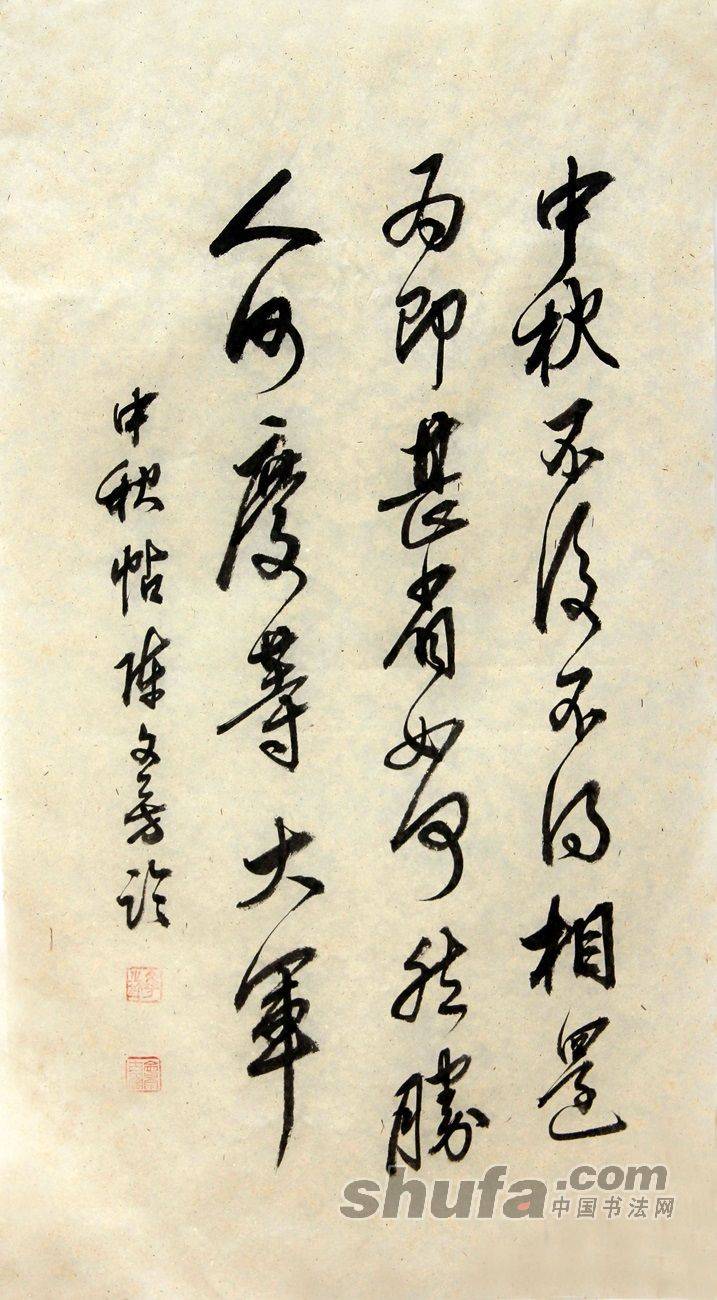 中秋不復不得相還
為即甚省如何然勝
人何慶等大軍
中秋帖陳文芳臨
shufa.com
中国书法网